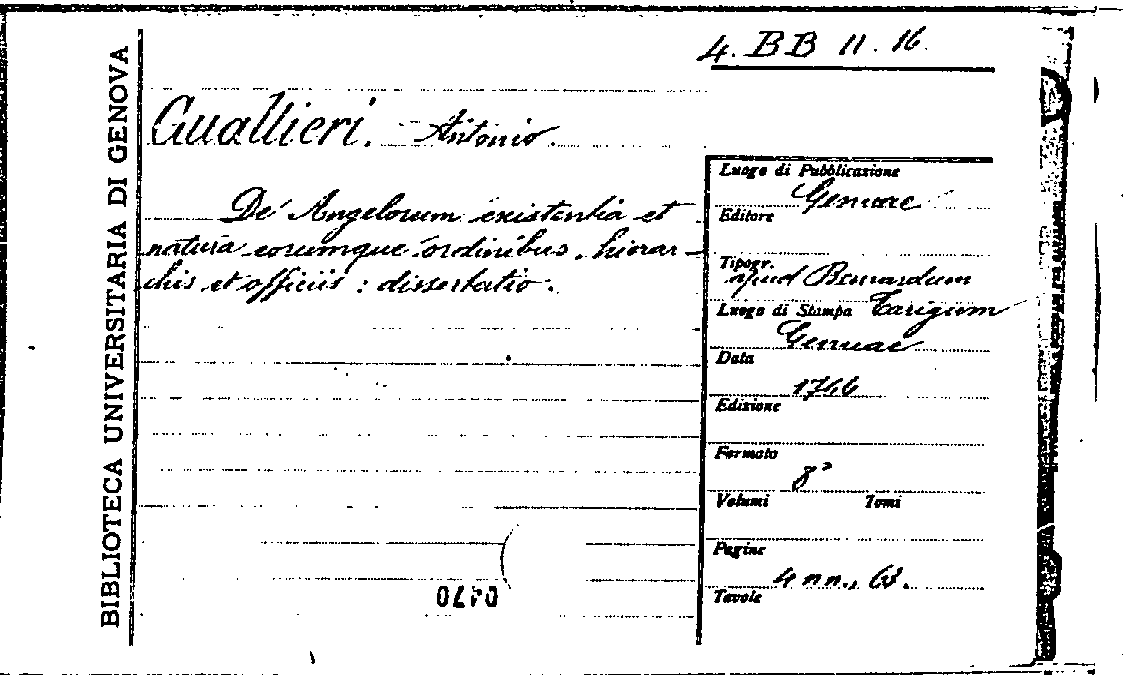 BIBLIOTECA UNIVERSITARIA DI GENOVA
4. BB 11. 16.
Gualtieri. Antonio.
De Angelorum existentia et
natura eorumque ordinibus, hierar-
chis et officiis : dissertatio.
Luogo di Pubblicazione
Genuae
Editore
Tipogr.
apud Bernardum
Luogo di Stampa Tarigum
Genuae
Data
1766
Edizione
Formato
8°
Volumi Tomi
Pagine
4 nn., 63.
Tavole
0470